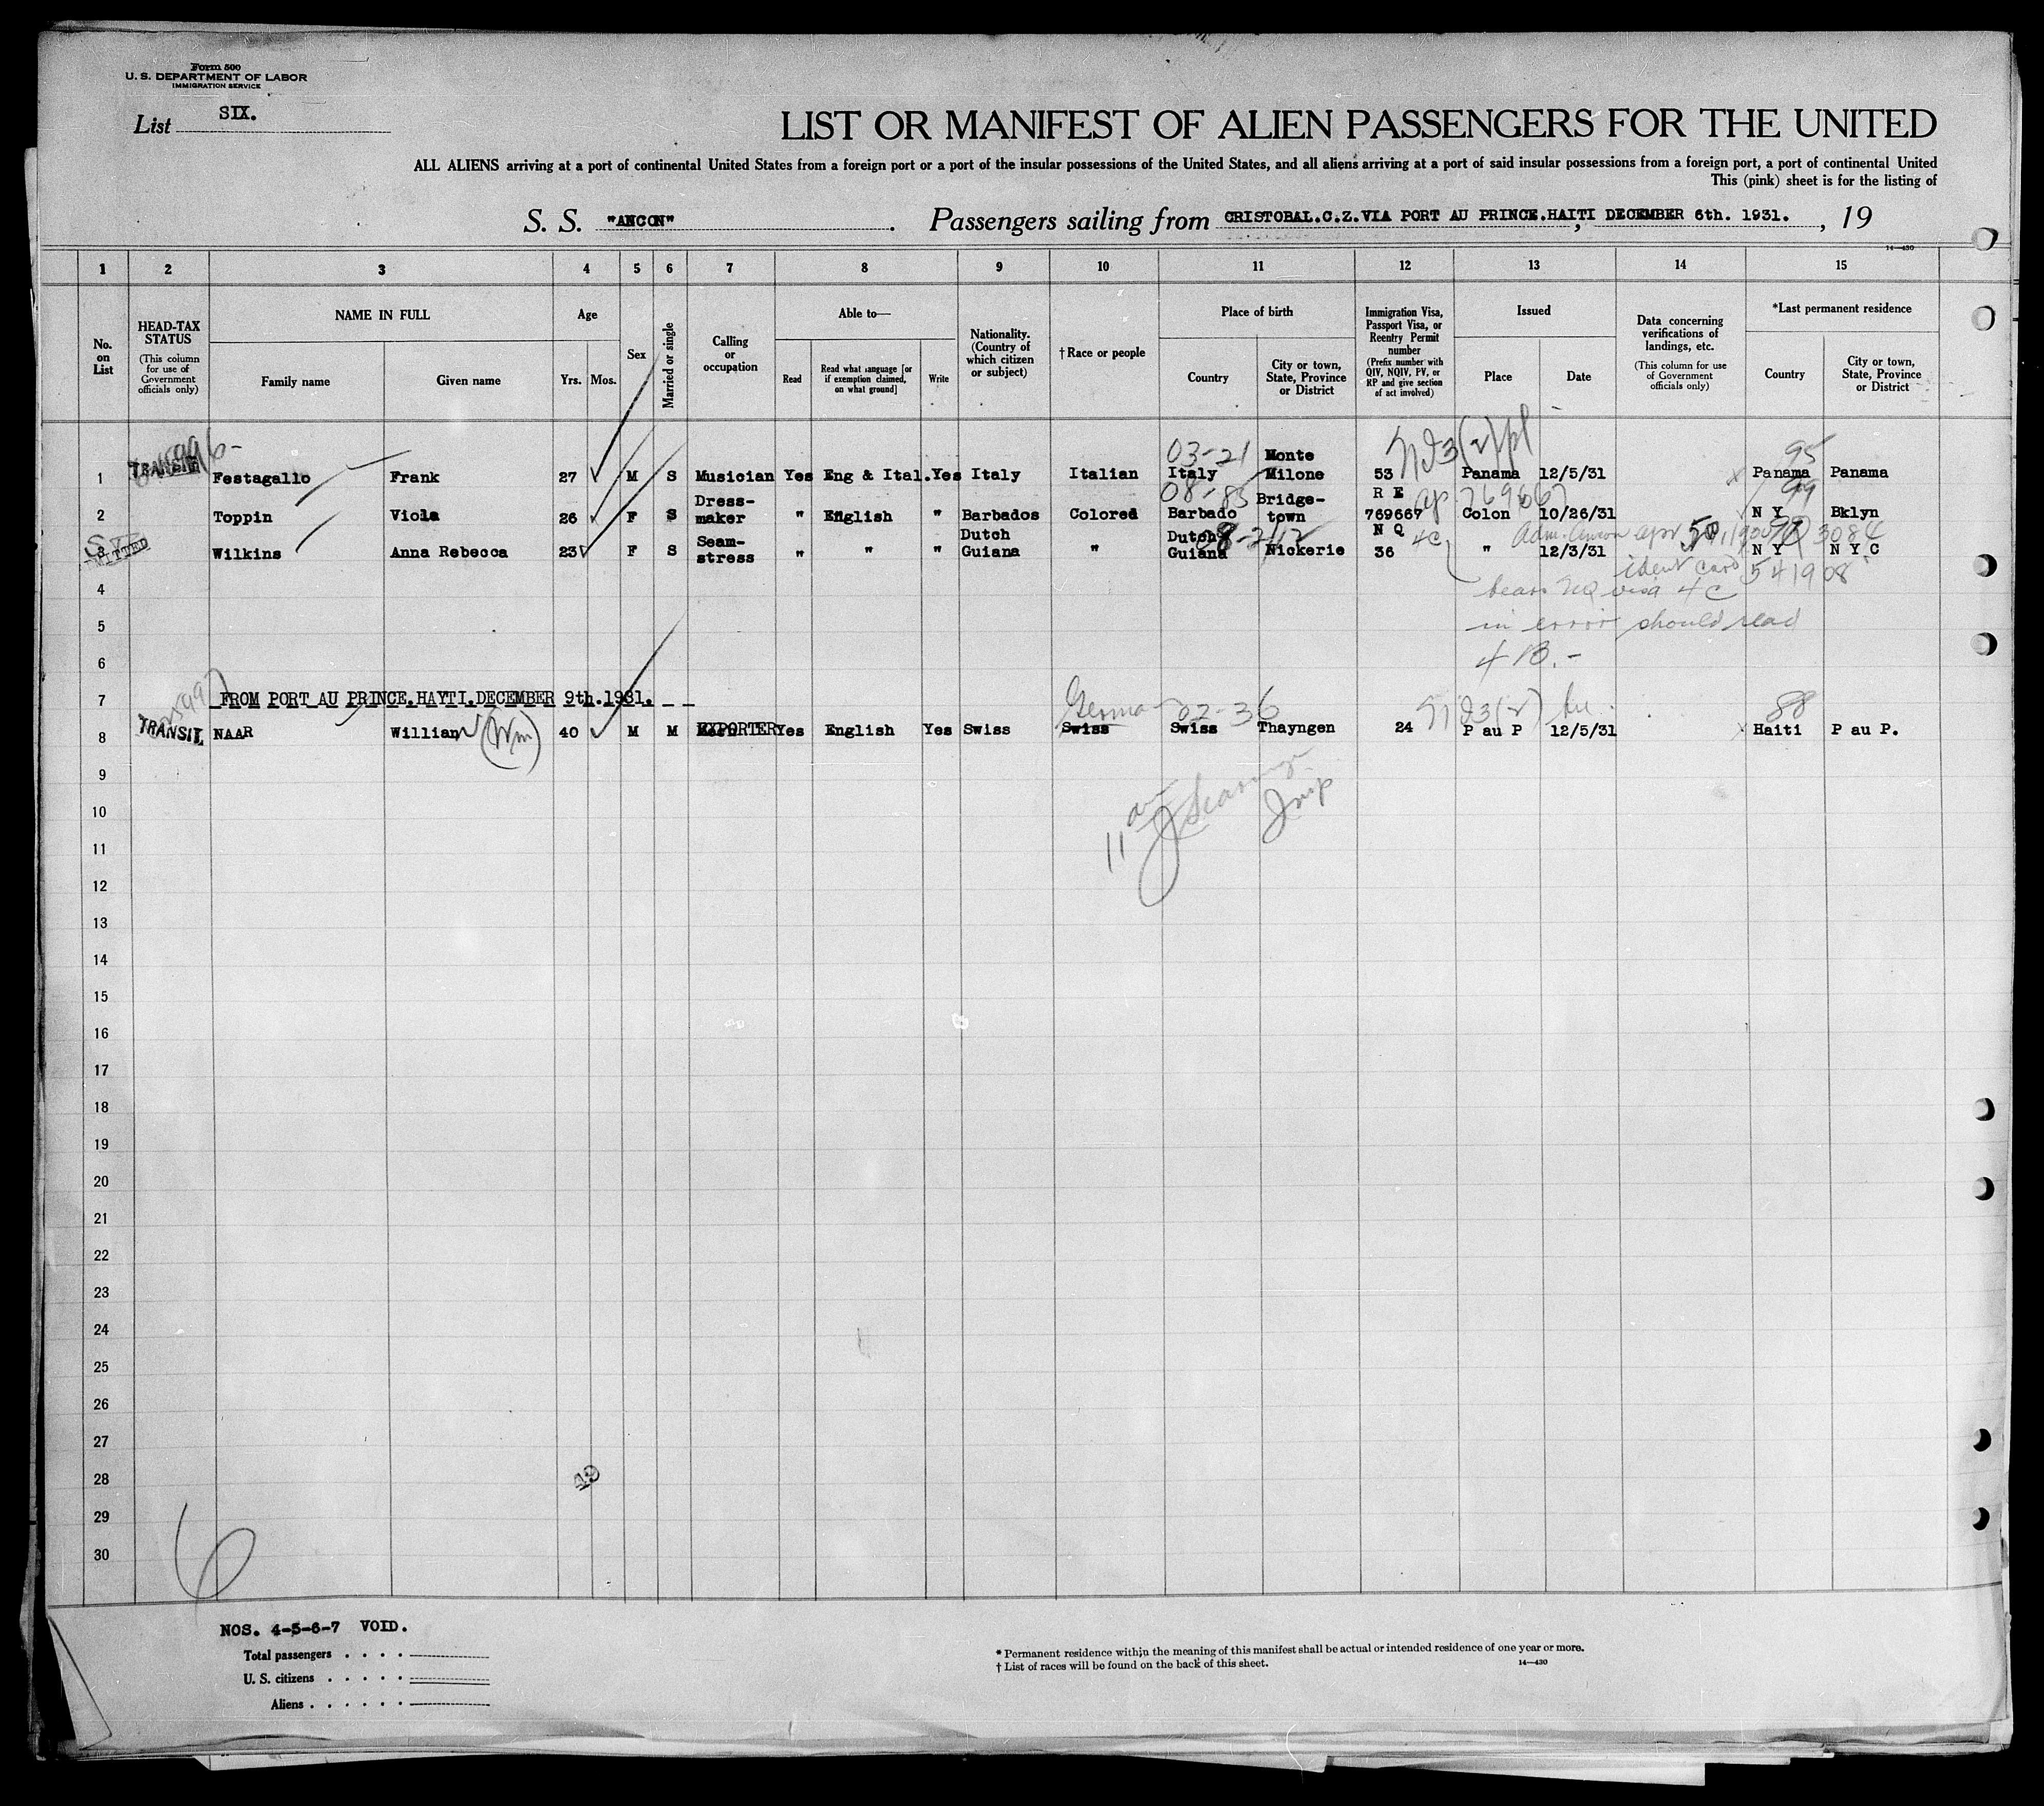 Form 500
U. S. DEPARTMENT OF LABOR
IMMIGRATION SERVICE
List SIX.
LIST OR MANIFEST OF ALIEN PASSENGERS FOR THE UNITED
ALL ALIENS arriving at a port of continental United States from a foreign port or a port of the insular possessions of the United States, and all aliens arriving at a port of said insular possessions from a foreign port, a port of continental United
This (pink) sheet is for the listing of
S. S. "ANCON" . Passengers sailing from CRISTOBAL.C.Z.VIA PORT AU PRINCE.HAITI DECEMBER 6th. 1931. , 19
14—430
1 2 3 4 5 6 7 8 9 10 11 12 13 14 15
No. on List
HEAD-TAX STATUS
(This column for use of Government officials only)
NAME IN FULL
Family name
Given name
Age
Yrs.
Mos.
Sex
Married or single
Calling or occupation
Able to—
Read
Read what language [or if exemption claimed, on what ground]
Write
Nationality. (Country of which citizen or subject)
†Race or people
Place of birth
Country
City or town, State, Province or District
Immigration Visa, Passport Visa, or Reentry Permit number
(Prefix number with QIV, NQIV, PV, or RP and give section of act involved)
Issued
Place
Date
Data concerning verifications of landings, etc.
(This column for use of Government officials only)
*Last permanent residence
Country
City or town, State, Province or District
03-21 Monte 95
1 TRANSIT Festagallo Frank 27 M S Musician Yes Eng & Ital. Yes Italy Italian Italy Milone 53 Panama 12/5/31 Panama Panama
Dress- 08-85 Bridge- R E 769667 99
2 Toppin Viola 26 F S maker " English " Barbados Colored Barbado town 769667 Colon 10/26/31 N Y Bklyn
Seam- Dutch Dutch N Q 4C
3 Wilkins Anna Rebecca 23 F S stress " " " Guiana " Guiana Nickerie 36 " 12/3/31 N Y N Y C
ident card 541908
4 bears NQ visa 4C
5 in error should read
6 4 B.-
7 FROM PORT AU PRINCE.HAYTI.DECEMBER 9th.1931.
German 02-36 88
8 TRANSIT NAAR William (Wm) 40 M M EXPORTER Yes English Yes Swiss Swiss Swiss Thayngen 24 P au P 12/5/31 Haiti P au P.
9
10
11
12
13
14
15
16
17
18
19
20
21
22
23
24
25
26
27
28
29
30
6
NOS. 4-5-6-7 VOID.
Total passengers
U. S. citizens
Aliens
* Permanent residence within the meaning of this manifest shall be actual or intended residence of one year or more.
† List of races will be found on the back of this sheet.
14—430